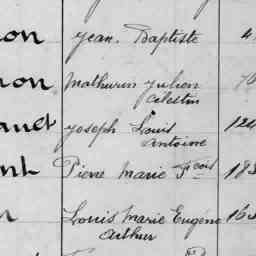 non Jean Baptiste
non Mathurin Julien
Célestin
aud Joseph Louis 124
Antoine
Pierre Marie Fcois
Louis Marie Eugène
Arthur